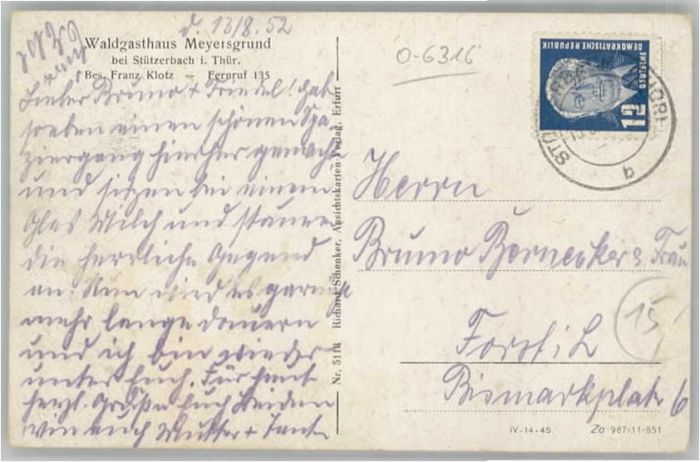 d. 13/8. 52
Waldgasthaus Meyersgrund
bei Stützerbach i. Thür.
Bes. Franz Klotz – Fernruf 135
Lieber Bruno + Friedel! Hab
soeben einen schönen Spa
ziergang hierher gemacht
und sitzen bei einem
Glas Milch und staunen
die herrliche Gegend
an. Nun wird es garnicht
mehr lange dauern
und ich bin wieder
unter Euch. Für heut
herzl. Grüße Euch Beiden
wie auch Mutter + Tante
Nr. 5114 Richard Schenker, Ansichtskarten-Verlag, Erfurt
O-6316
DEUTSCHE
DEMOKRATISCHE REPUBLIK
12
q
Herrn
Bruno Bernecker & Frau
Forst i. L
15
Bismarkplatz 6
IV-14-45. Za 987-11-851